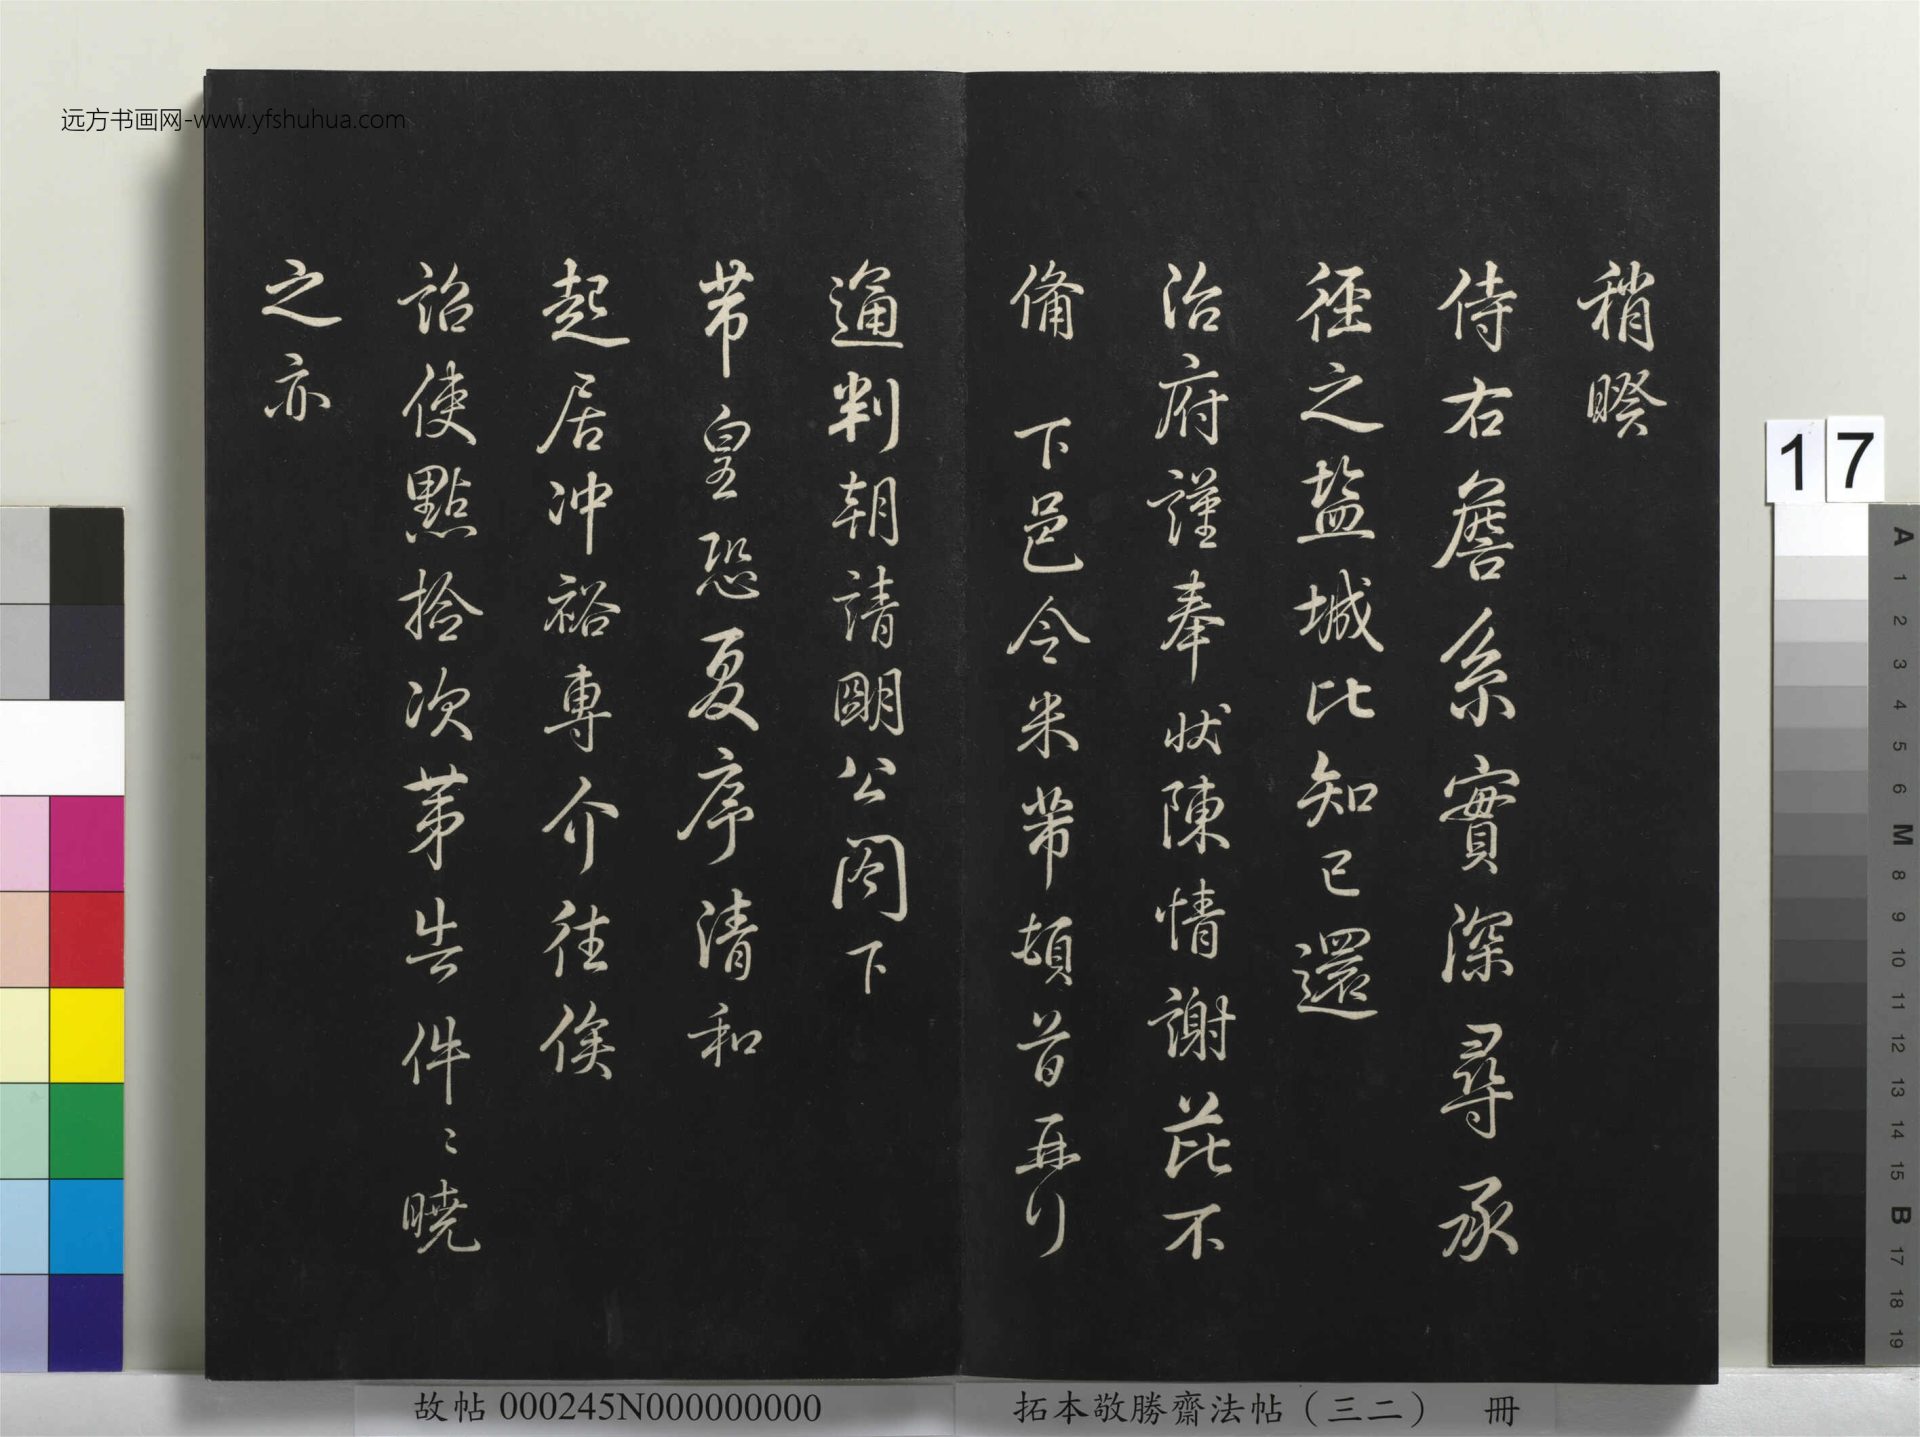 稍暌
侍右詹系實深尋承
徑之盐城比知已還
治府謹奉狀陳情謝茈不
俻 下邑令米芾頓首再行
通判朝請朙公阁下
芾皇恐夏序清和
起居冲裕專介往候
詔使點捡次苐告件〻曉
之亦
远方书画网-www.yfshuhua.com
17
A
1
2
3
4
5
6
M
8
9
10
11
12
13
14
15
B
17
18
19
故帖 000245N000000000
拓本敬勝齋法帖（三二） 冊